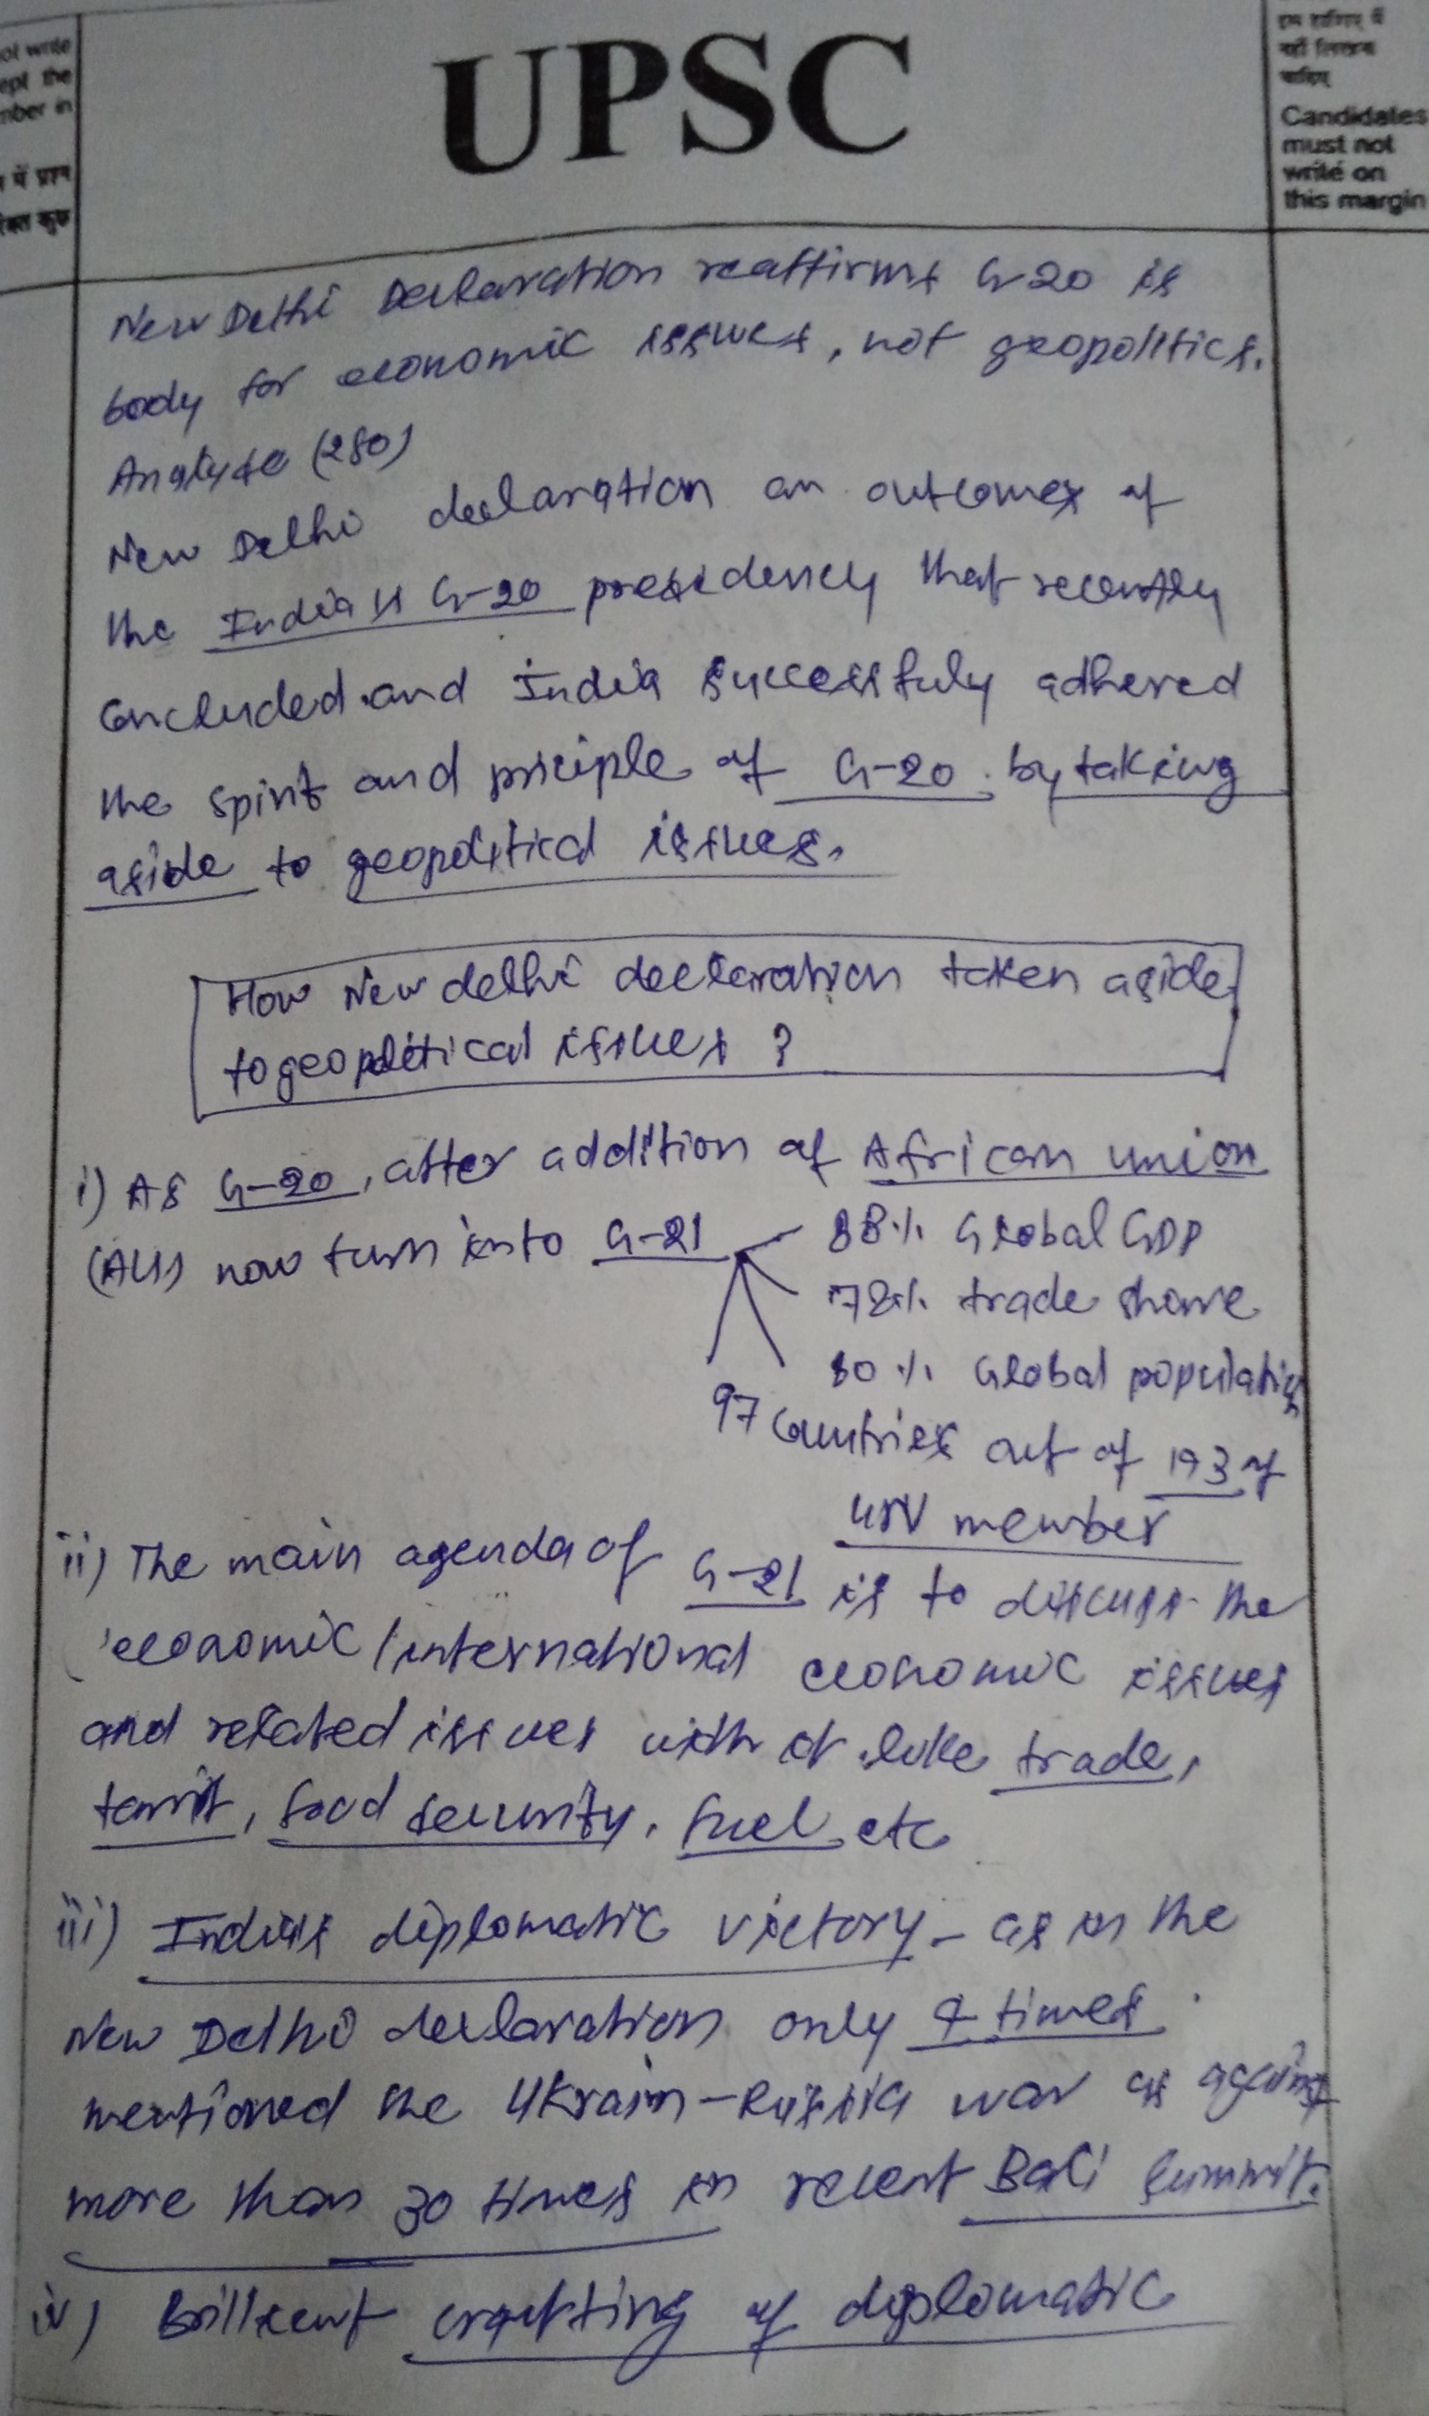 ot write
ept the
mber in
में प्रश्न
रिक्त कुछ
UPSC
इस हाशिए में
नहीं लिखना
चाहिए
Candidates
must not
write on
this margin
New Delhi Declaration reaffirms G-20 is
body for economic issues, not geopolitics.
Analyse (250)
New Delhi declaration an outcomes of
the India's G-20 presidency that recently
concluded and India successfuly adhered
the spirit and priciple of G-20 by taking
aside to geopolitical issues.
How New delhi declaration taken aside
to geopolitical issues ?
i) As G-20, after addition of African union
(AU) now turn into G-21
88% Global GDP
78% trade share
80% Global population
97 countries out of 193 of
UN member
ii) The main agenda of G-21 is to discuss the
economic/international economic issues
and related issues with it like trade,
tarrif, food security, fuel etc
iii) India's diplomatic victory - as in the
New Delhi declaration only 4 times
mentioned the Ukrain-Russia war as against
more than 30 times in recent Bali Summit.
iv) Brillient crafting of diplomatic